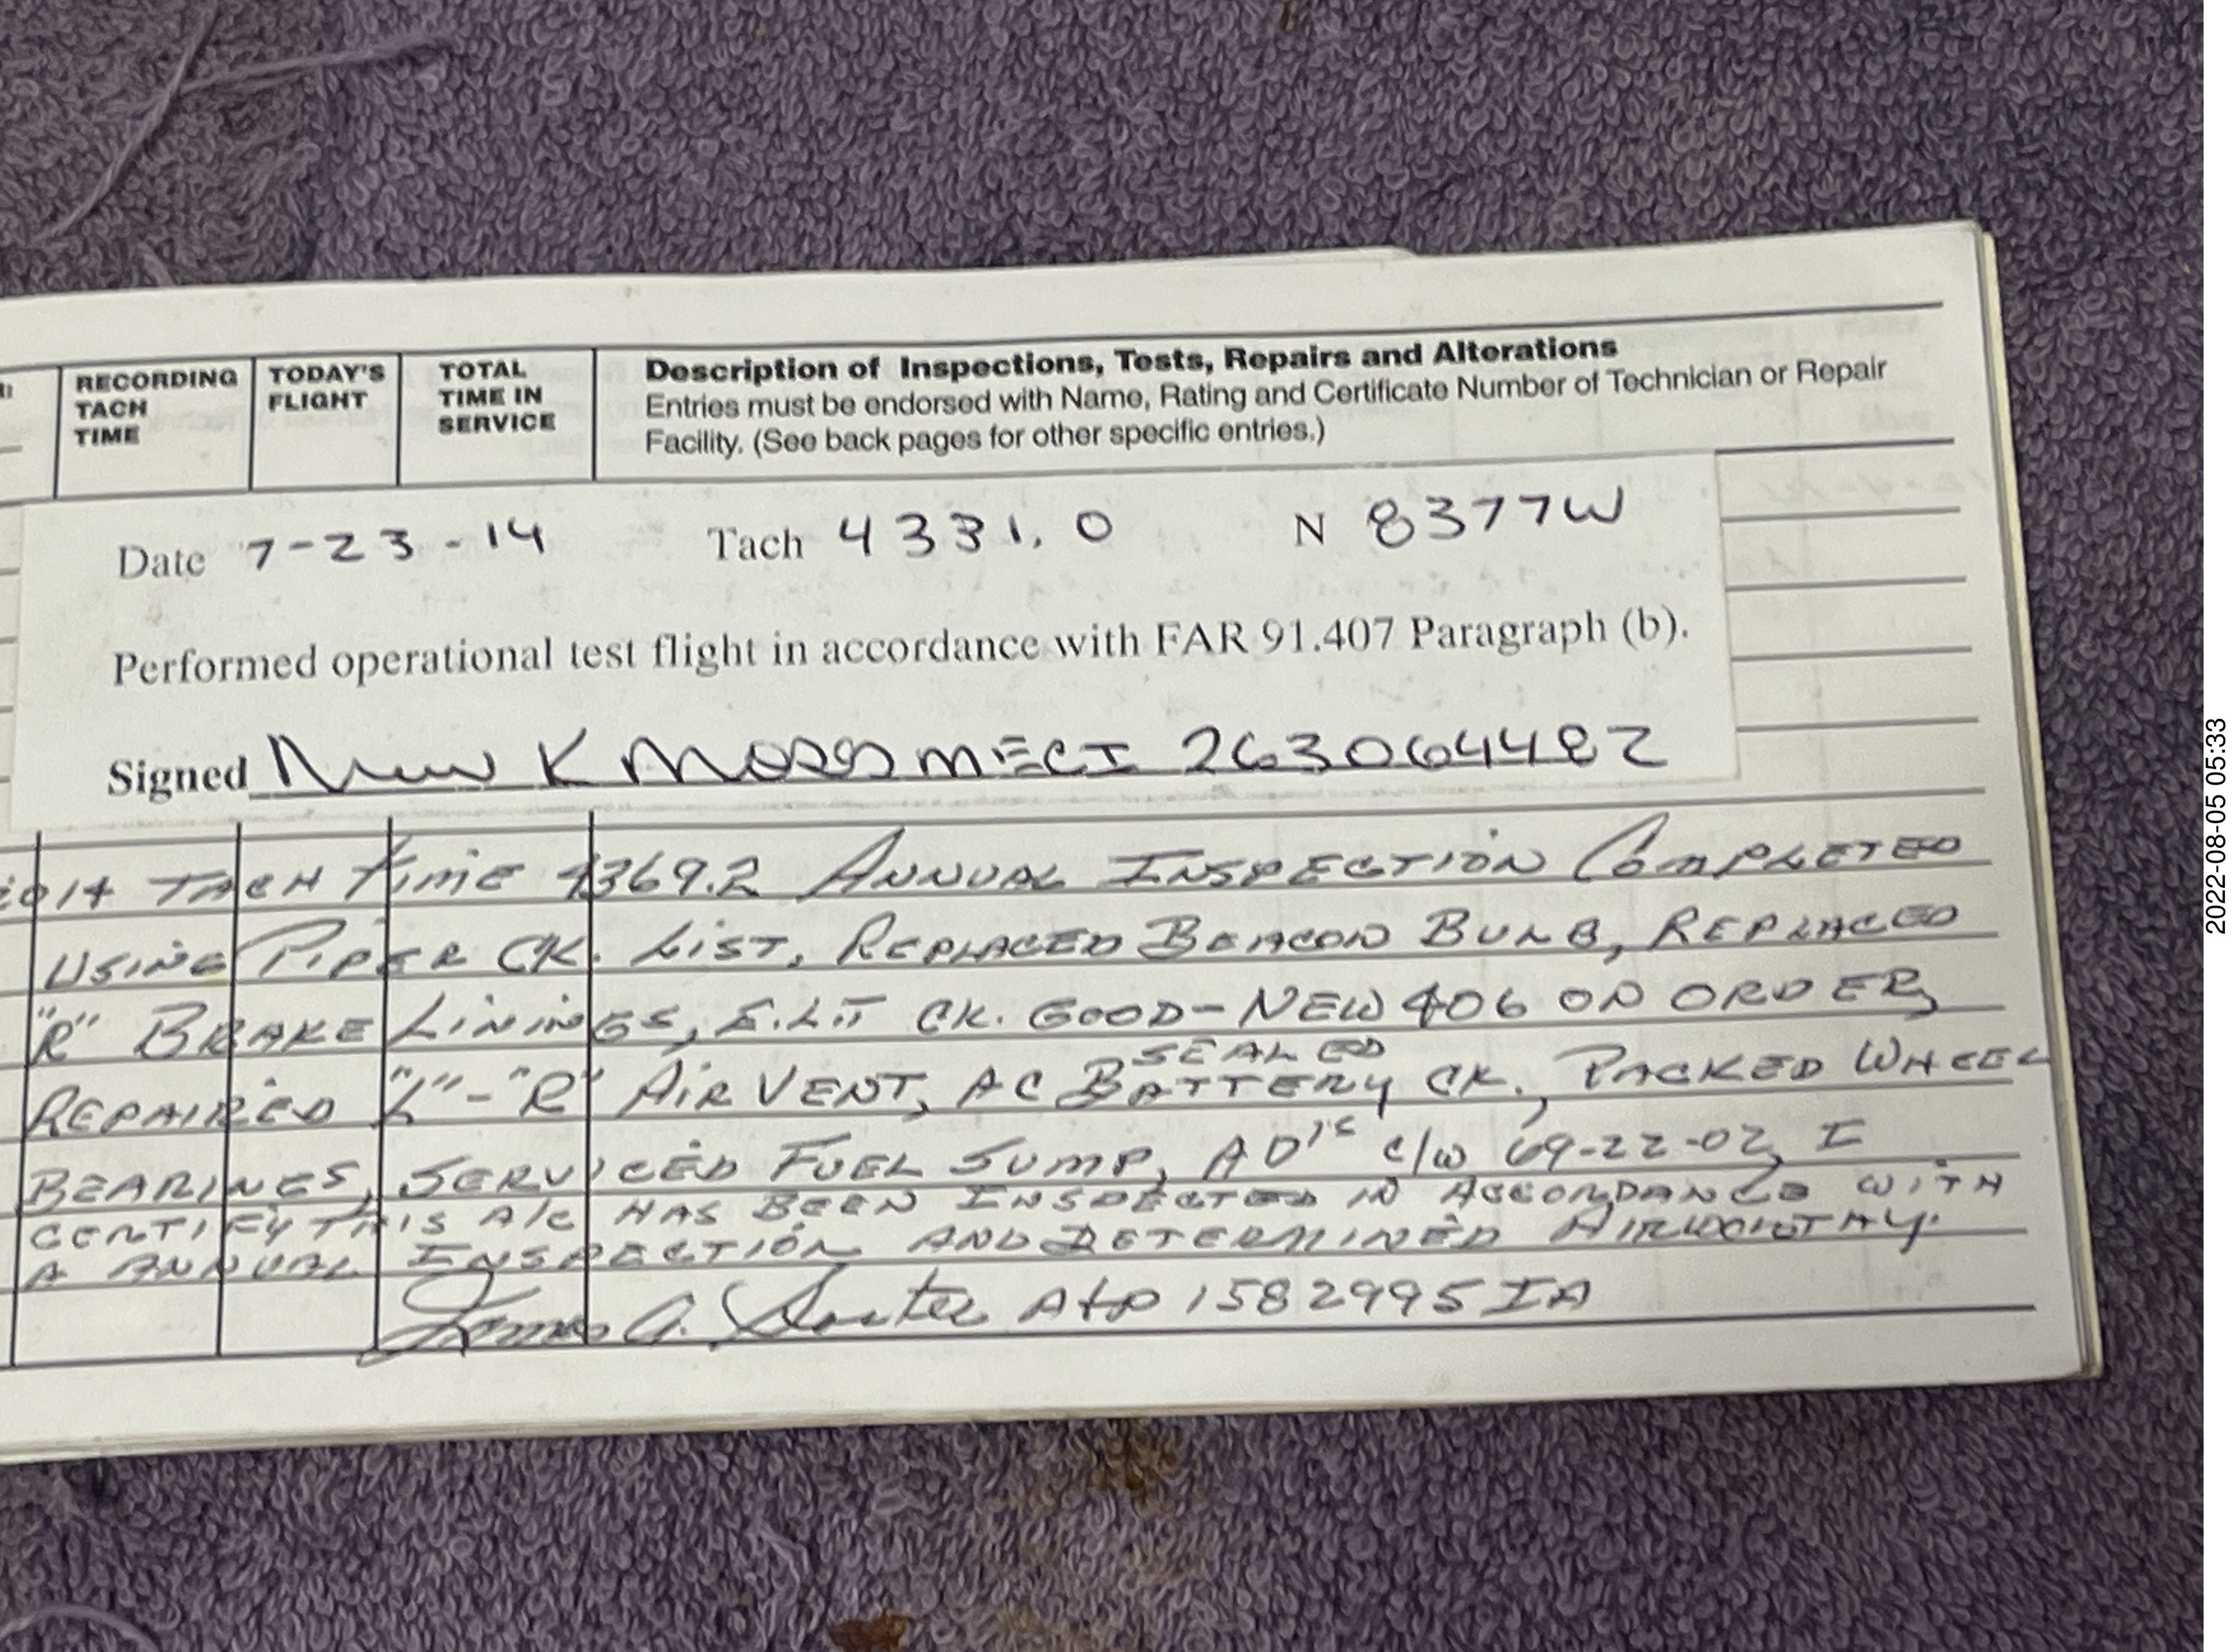 RECORDING TACH TIME
TODAY'S FLIGHT
TOTAL TIME IN SERVICE
Description of Inspections, Tests, Repairs and Alterations
Entries must be endorsed with Name, Rating and Certificate Number of Technician or Repair
Facility. (See back pages for other specific entries.)
Date 7-23-14 Tach 4331.0 N 8377W
Performed operational test flight in accordance with FAR 91.407 Paragraph (b).
Signed K Moss MECI 263064482
2014 TACH TIME 4369.2 ANNUAL INSPECTION COMPLETED
USING PIPER CK. LIST, REPLACED BEACON BULB, REPLACED
"R" BRAKE LININGS, E.L.T CK. GOOD - NEW 406 ON ORDER,
SEALED
REPAIRED "L"-"R" AIR VENT, AC BATTERY CK., PACKED WHEEL
BEARINGS, SERVICED FUEL SUMP, AD'S C/W 69-22-02, I
CERTIFY THIS A/C HAS BEEN INSPECTED IN ACCORDANCE WITH
A ANNUAL INSPECTION AND DETERMINED AIRWORTHY.
James A. A+P 1582995 IA
2022-08-05 05:33